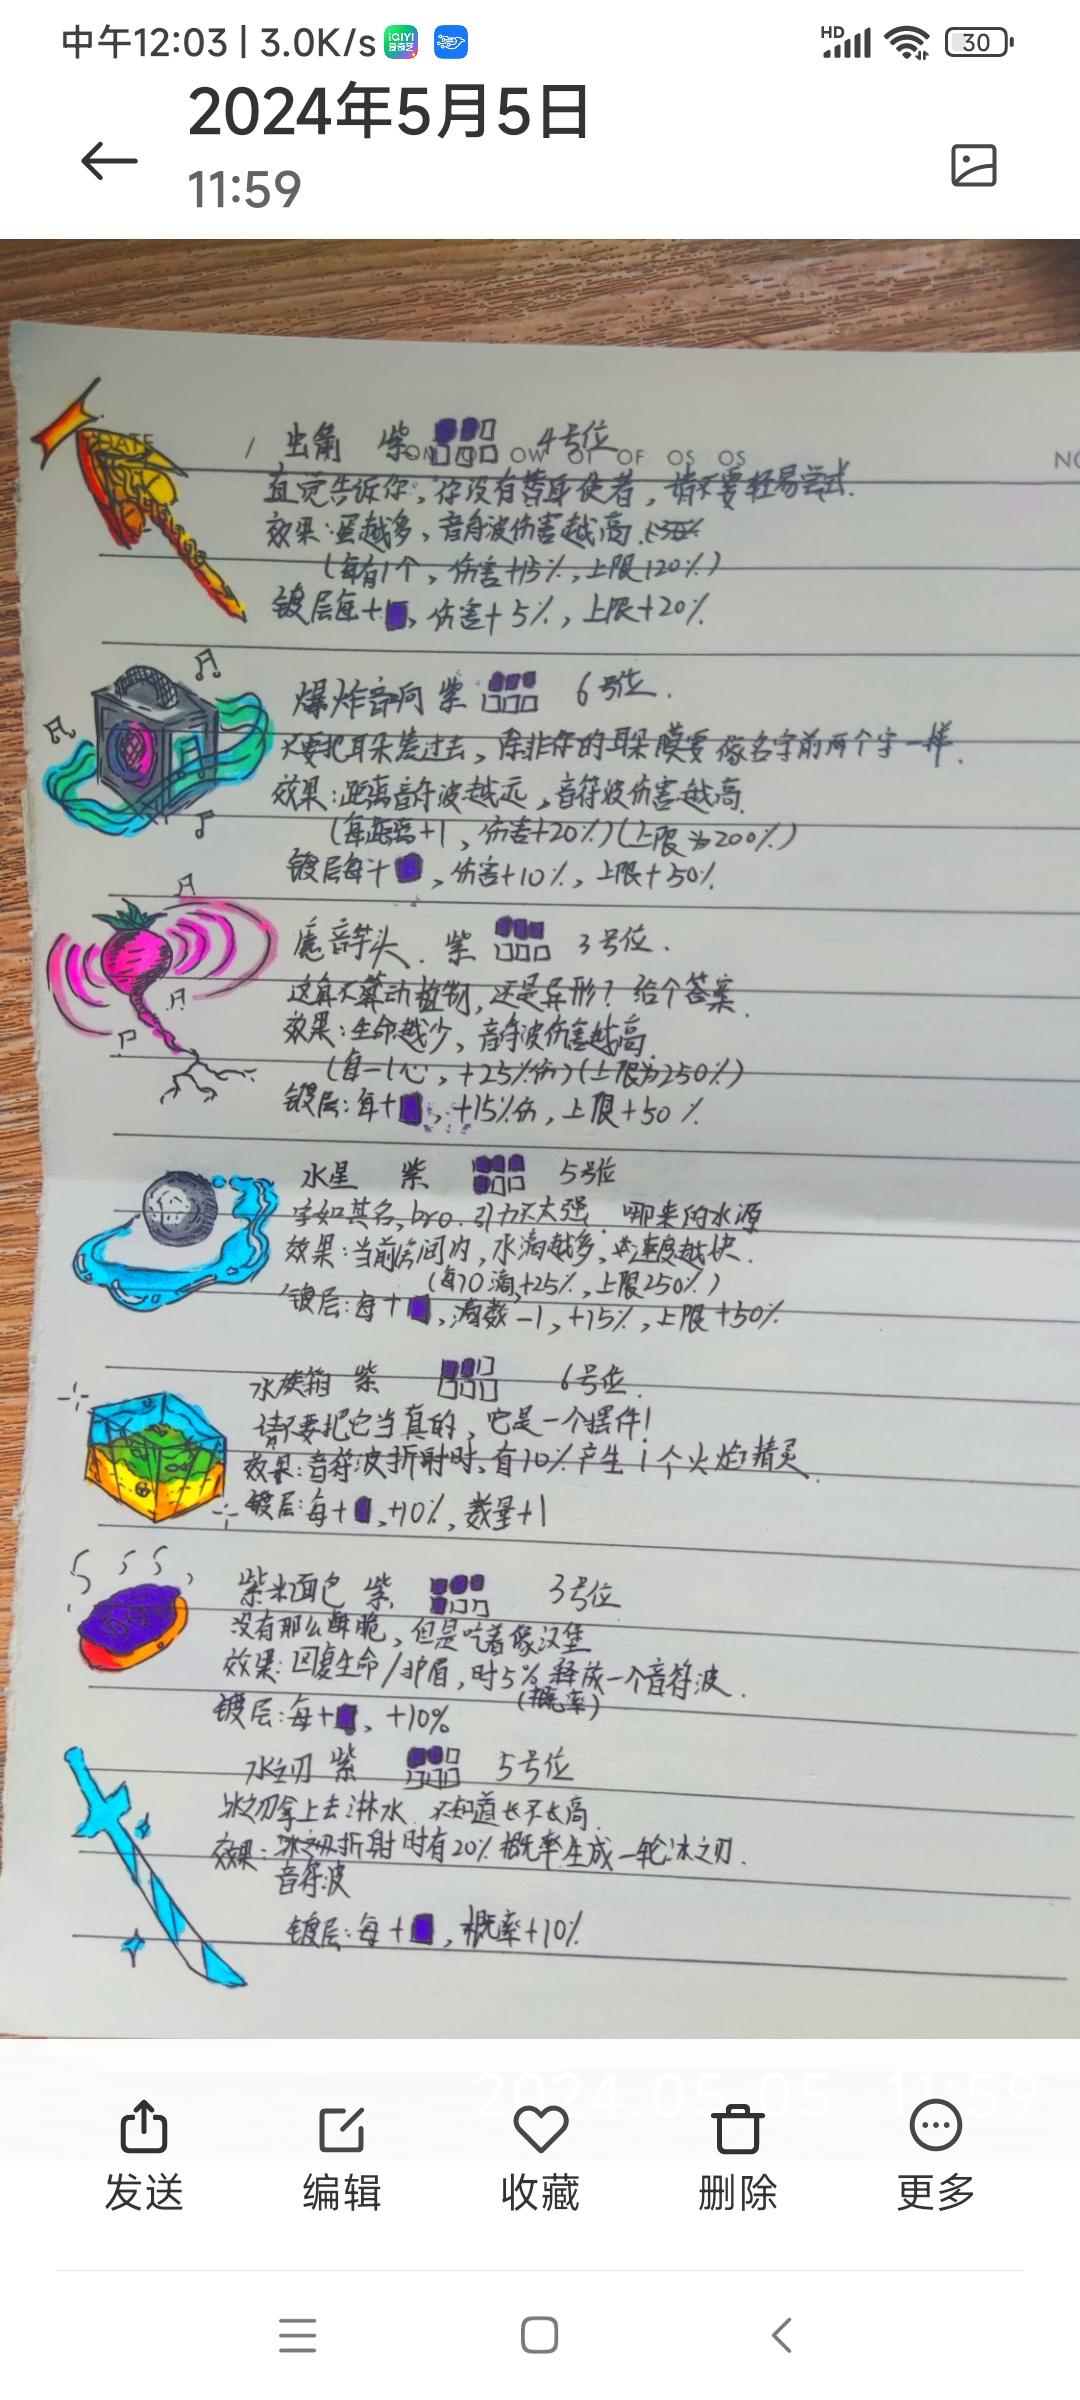 中午12:03 | 3.0K/s
iQIYI
爱奇艺
HD
30
2024年5月5日
11:59
DATE
OW OF OS OS
NO
出箭 紫 4号位
直觉告诉你,你没有替耳使者,请不要轻易尝试.
效果:蛋越多,音符波伤害越高.
(每有1个,伤害+15%,上限120%)
镀层每+,伤害+5%,上限+20%
爆炸音向 紫 6号位.
不要把耳朵凑过去,除非你的耳朵膜要像名字前两个字一样.
效果:距离音符波越远,音符波伤害越高.
(每距离+1,伤害+20%)(上限为200%)
镀层每+,伤害+10%,上限+50%
魔音芋头. 紫 3号位.
这真不算动植物,还是异形?给个答案.
效果:生命越少,音符波伤害越高.
(每-1心,+25%伤)(上限为250%)
镀层:每+,+15%伤,上限+50%
水星 紫 5号位
字如其名,bro.引力不太强 哪来的水源
效果:当前房间内,水滴越多,速度越快.
(每10滴,+25%,上限250%)
镀层:每+,滴数-1,+15%,上限+50%
水族箱 紫 6号位.
请不要把它当真的,它是一个摆件!
效果:音符波折射时,有10%产生1个火焰精灵.
镀层:每+,+10%,数量+1
紫米面包 紫 3号位
没有那么酥脆,但是吃着像汉堡
效果:回复生命/护盾,时5%释放一个音符波.
(概率)
镀层:每+,+10%
冰之刃 紫 5号位
冰之刃拿上去淋水.不知道长不长高.
效果:折射时有20%概率生成一轮冰之刃.
音符波
镀层:每+,概率+10%
2024.05.05 11:59
发送 编辑 收藏 删除 更多